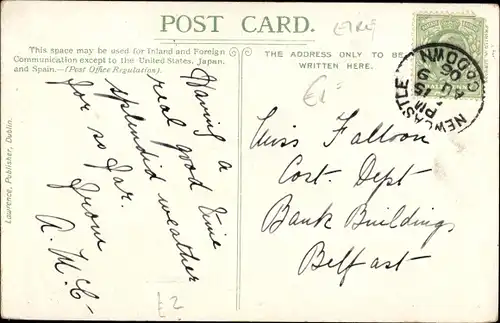 POST CARD.
This space may be used for Inland and Foreign
Communication except to the United States, Japan,
and Spain.—(Post Office Regulation).
THE ADDRESS ONLY TO BE
WRITTEN HERE.
Having a
real good time
splendid weather
for so far.
from
A. McC-
Miss Falloon
Cost. Dept
Bank Buildings
Belfast
NEWCASTLE CO.DOWN
PM
AU 9
06
Lawrence, Publisher, Dublin.
£2